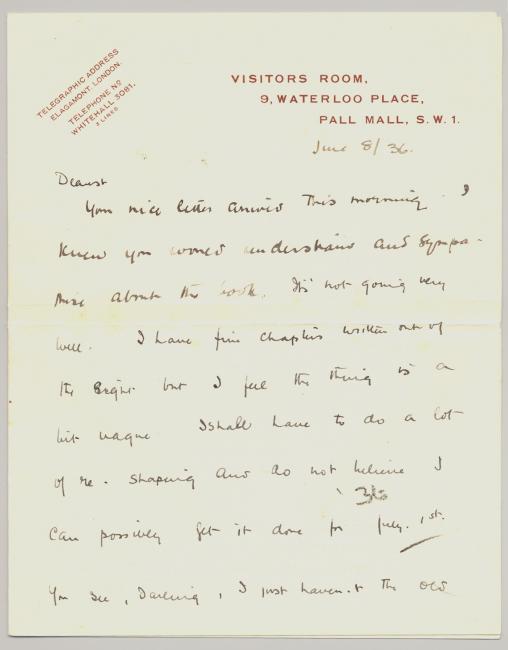 TELEGRAPHIC ADDRESS
ELAGAMONT. LONDON.
TELEPHONE No
WHITEHALL 3081.
2 LINES
VISITORS ROOM,
9, WATERLOO PLACE,
PALL MALL, S.W.1.
June 8/36.
Dearest
Your nice letter arrived this morning. I
knew you would understand and sympa-
thise about the book. It's not going very
well. I have five chapters written out of
the eight but I feel the thing is a
bit vague I shall have to do a lot
of re-shaping and do not believe I
36
can possibly get it done for July. 1st.
You see, Darling, I just haven't the old